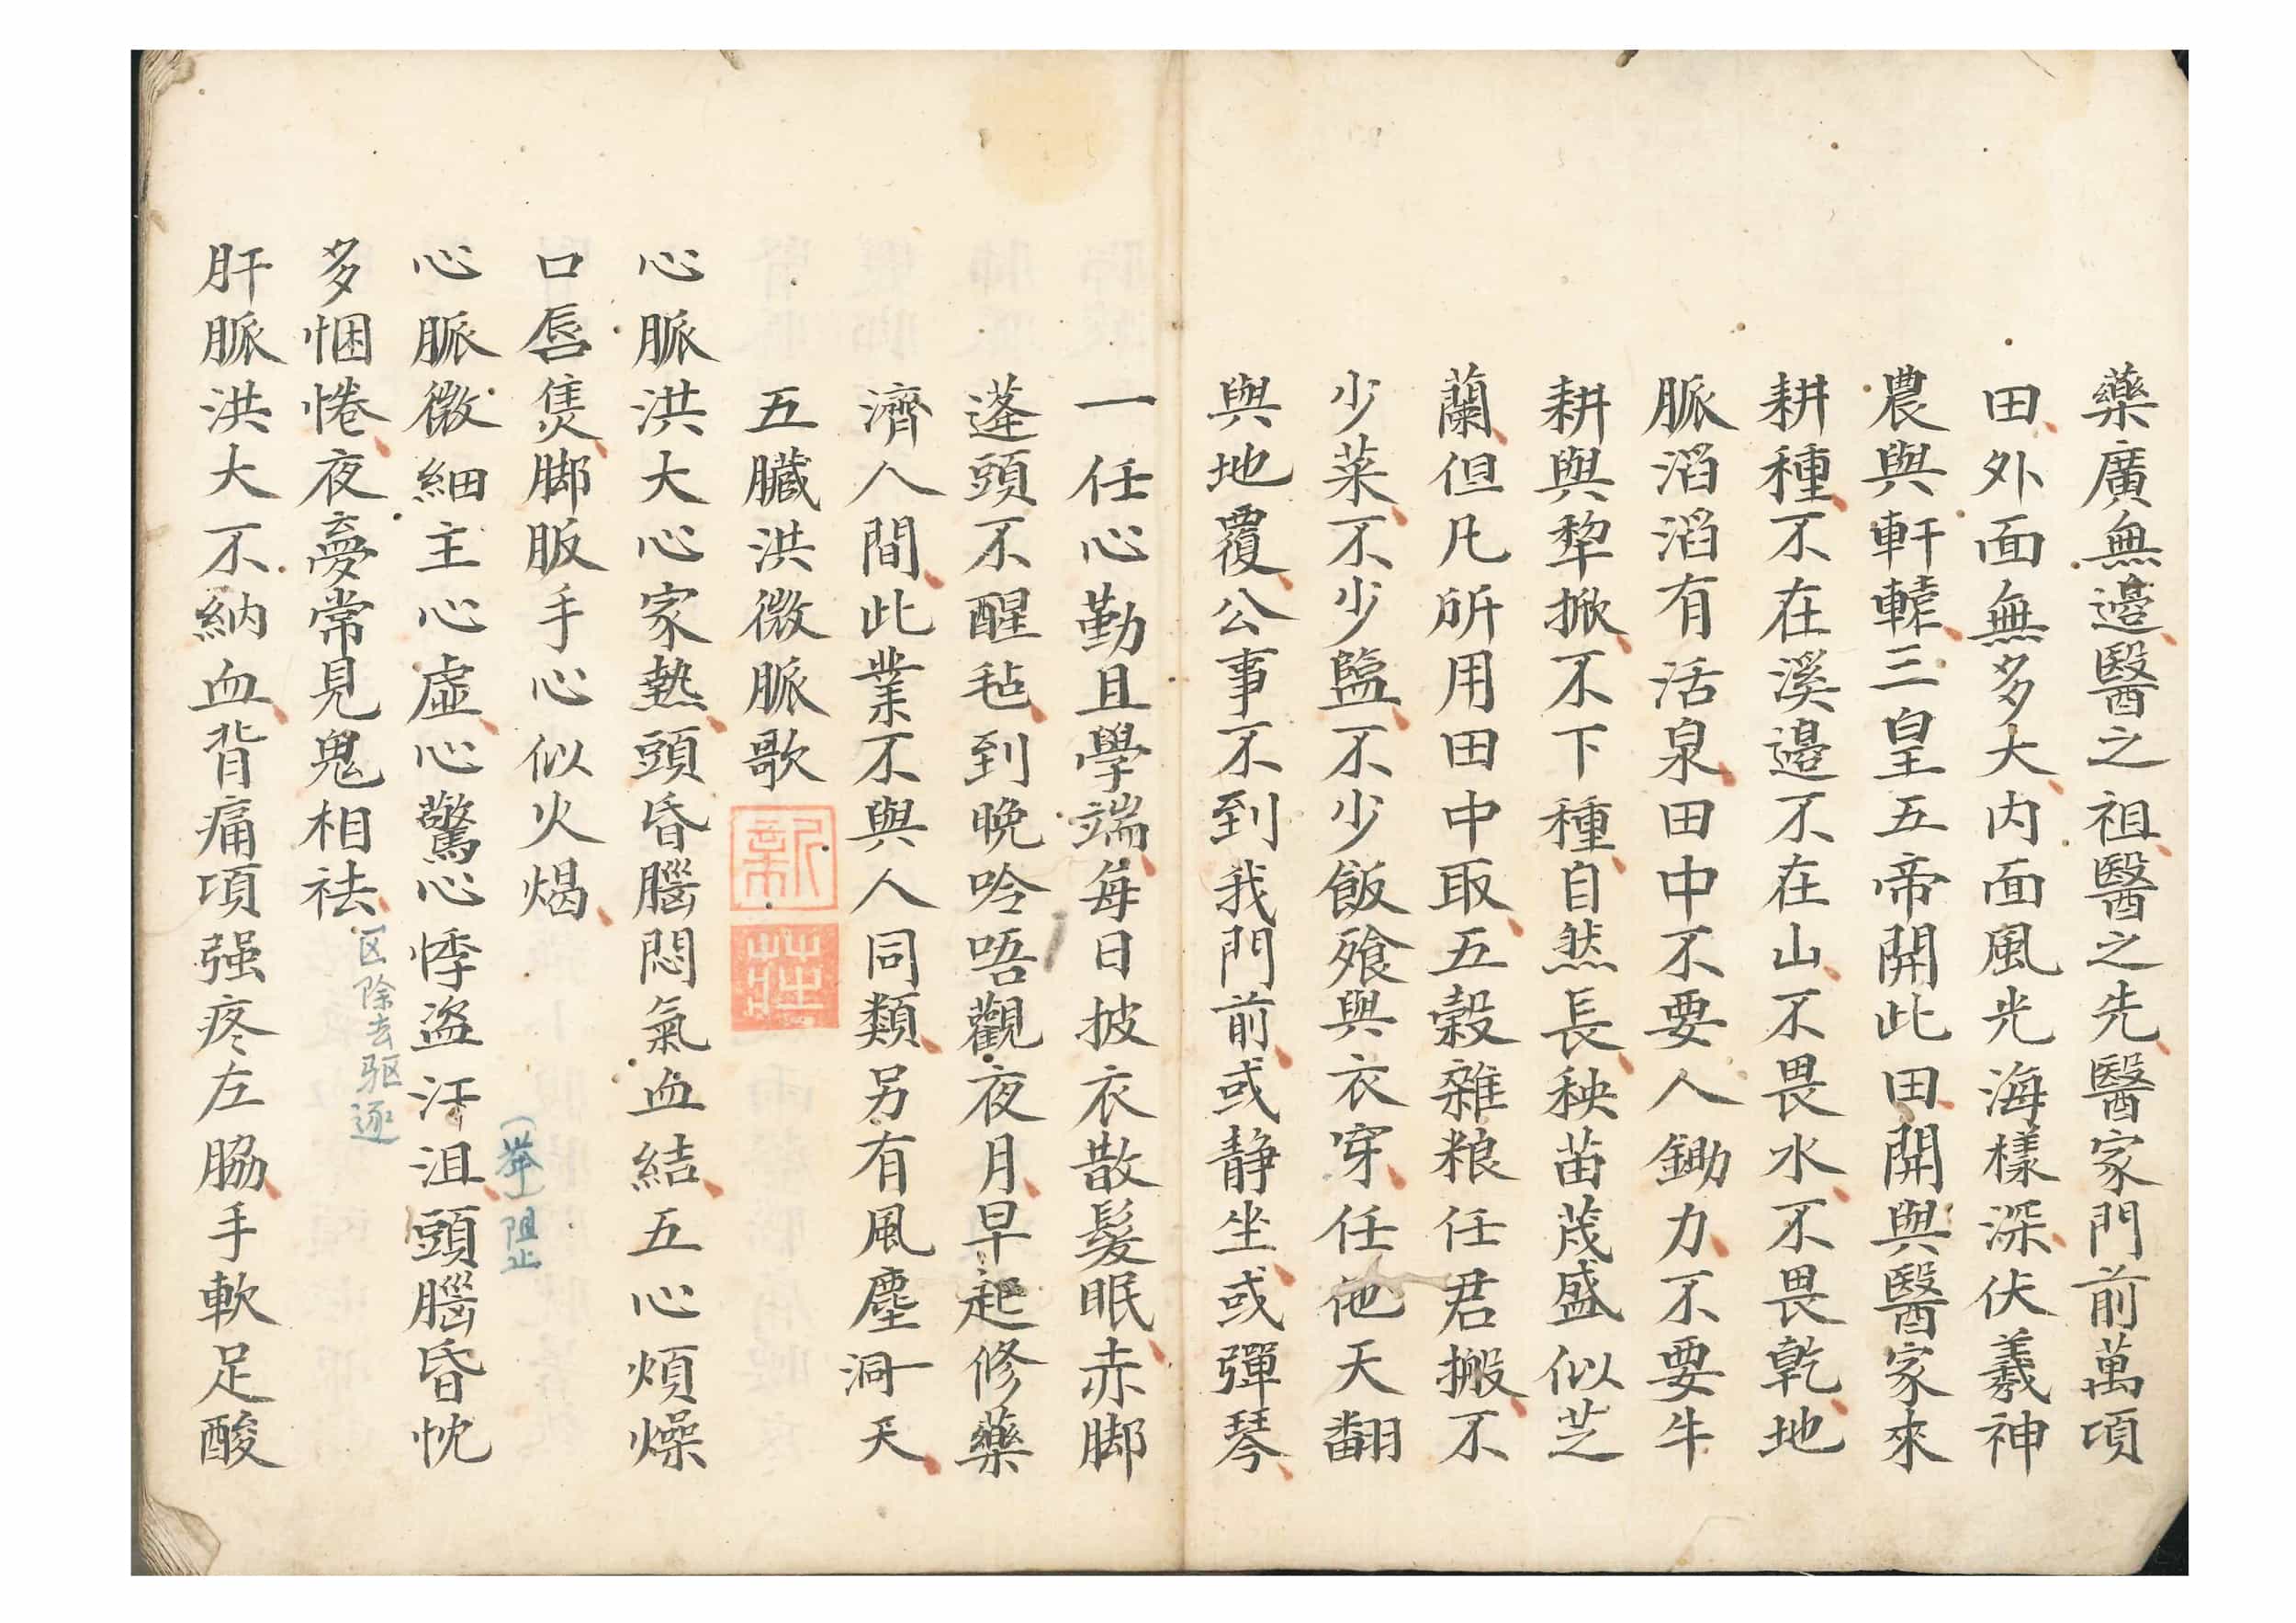 藥廣無邉醫之祖醫之先醫家門前萬項
田外面無多大内面風光海樣深伏羲神
農與軒轅三皇五帝開此田開與醫家來
耕種不在溪邉不在山不畏水不畏乾地
脈滔滔有活泉田中不要人鋤力不要牛
耕與犂掀不下種自然長秧苗茂盛似芝
蘭但凡所用田中取五穀雜粮任君搬不
少菜不少鹽不少飯飱與衣穿任他天翻
與地覆公事不到我門前或静坐或彈琴
一任心勤且學端每日披衣散髮眠赤脚
蓬頭不醒毡到晚吟唔觀夜月早起修藥
濟人間此業不與人同類另有風塵洞一天
五臟洪微脈歌
新
莊
心脈洪大心家熱頭昏腦悶氣血結五心煩燥
口唇焦脚胈手心似火煬
心脈微細主心虛心驚心悸盗汗沮頭腦昏忱
(举)阻止
多悃惓夜夣常見鬼相祛
区除去驱逐
肝脈洪大不納血背痛項强疼左脇手軟足酸